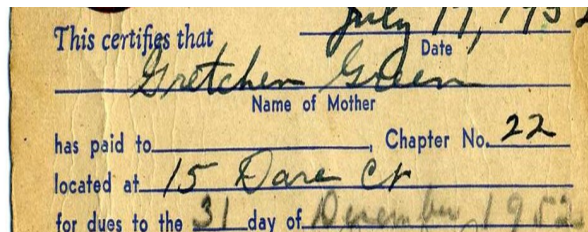 July 17, 1952
This certifies that
Date
Gretchen Green
Name of Mother
has paid to , Chapter No. 22
located at 15 Dare Ct
for dues to the 31 day of December 1952